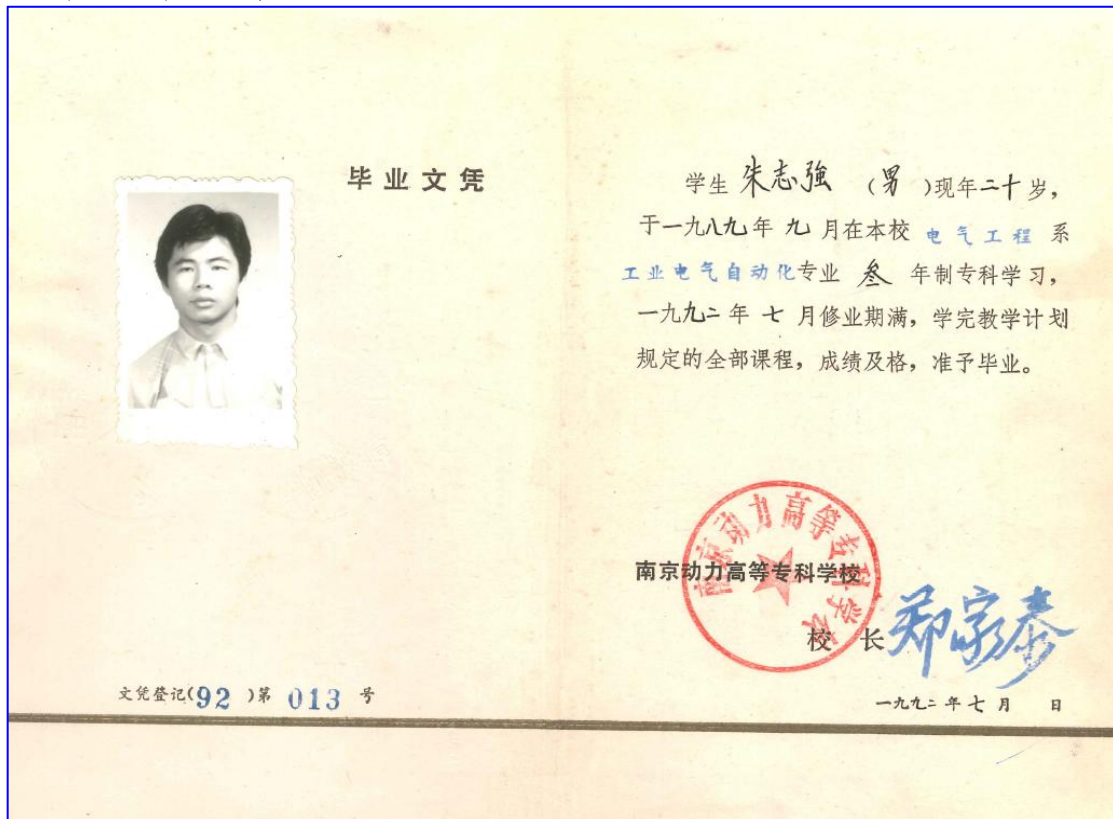 毕业文凭
文凭登记(92)第 013 号
学生 朱志強 (男)现年二十岁,
于一九八九年 九 月在本校 电气工程 系
工业电气自动化专业 叁 年制专科学习,
一九九二 年 七 月修业期满,学完教学计划
规定的全部课程,成绩及格,准予毕业。
南京动力高等专科学校
南京动力高等专科学校
校 长 郑家泰
一九九二 年 七 月 日